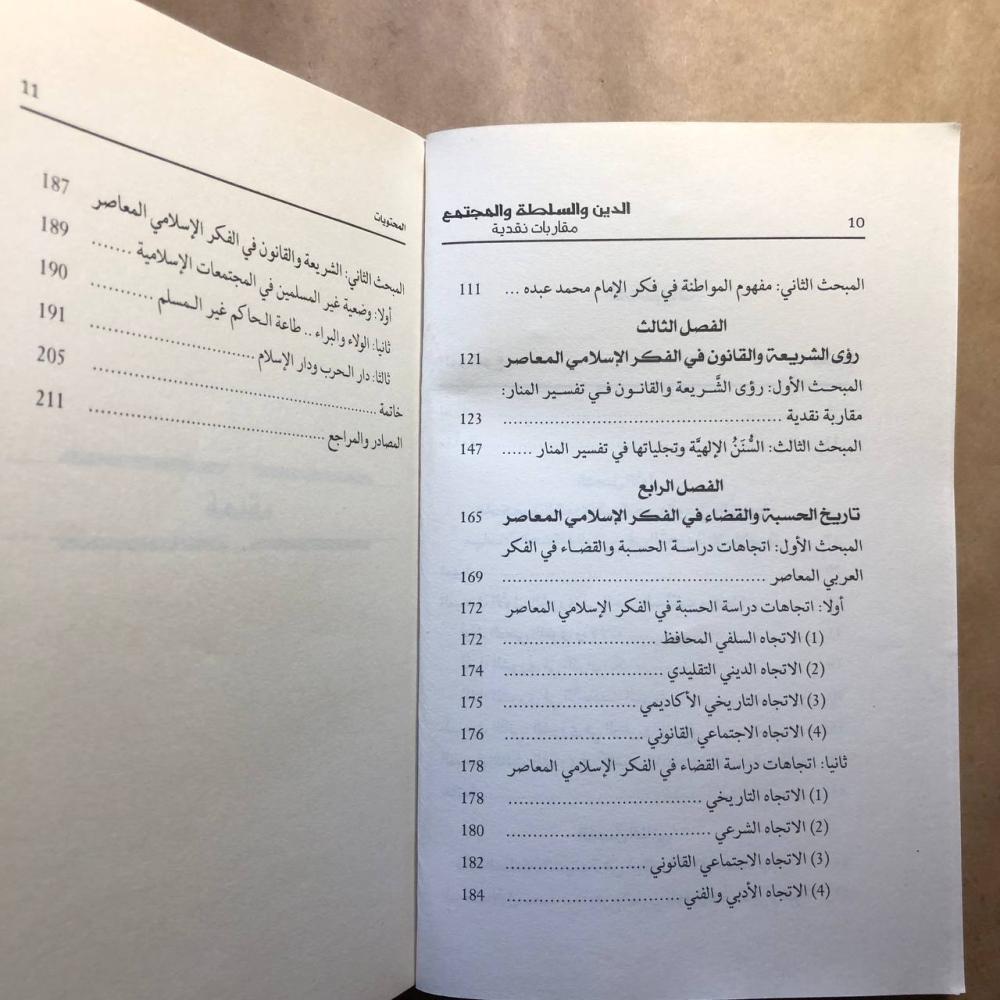 10
الدين والسلطة والمجتمع
مقاربات نقدية
المبحث الثاني: مفهوم المواطنة في فكر الإمام محمد عبده ... 111
الفصل الثالث
رؤى الشريعة والقانون في الفكر الإسلامي المعاصر 121
المبحث الأول: رؤى الشَّريعة والقانون في تفسير المنار:
مقاربة نقدية ........................................ 123
المبحث الثالث: السُّنَنُ الإلهيَّة وتجلياتها في تفسير المنار ...... 147
الفصل الرابع
تاريخ الحسبة والقضاء في الفكر الإسلامي المعاصر 165
المبحث الأول: اتجاهات دراسة الحسبة والقضاء في الفكر
العربي المعاصر ........................................ 169
أولا: اتجاهات دراسة الحسبة في الفكر الإسلامي المعاصر 172
(1) الاتجاه السلفي المحافظ ........................ 172
(2) الاتجاه الديني التقليدي ......................... 174
(3) الاتجاه التاريخي الأكاديمي ..................... 175
(4) الاتجاه الاجتماعي القانوني ...................... 176
ثانيا: اتجاهات دراسة القضاء في الفكر الإسلامي المعاصر 178
(1) الاتجاه التاريخي ............................... 178
(2) الاتجاه الشرعي ................................ 180
(3) الاتجاه الاجتماعي القانوني ...................... 182
(4) الاتجاه الأدبي والفني ........................... 184
المحتويات
11
المبحث الثاني: الشريعة والقانون في الفكر الإسلامي المعاصر 187
أولا: وضعية غير المسلمين في المجتمعات الإسلامية ....... 189
ثانيا: الولاء والبراء .. طاعة الحاكم غير المسلم ........... 190
ثالثا: دار الحرب ودار الإسلام ............................ 191
خاتمة ................................................ 205
المصادر والمراجع ....................................... 211